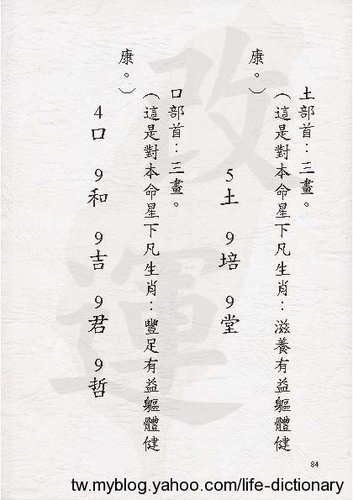 土部首：三畫。
（這是對本命星下凡生肖：滋養有益軀體健
康。）
5土 9培 9堂
口部首：三畫。
（這是對本命星下凡生肖：豐足有益軀體健
康。）
4口 9和 9吉 9君 9哲
改運
84
tw.myblog.yahoo.com/life-dictionary